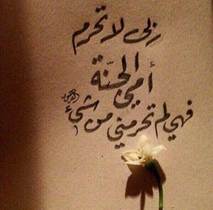 ربي لا تحرم
أمي الجنة
فهي لم تحرمني من شيء